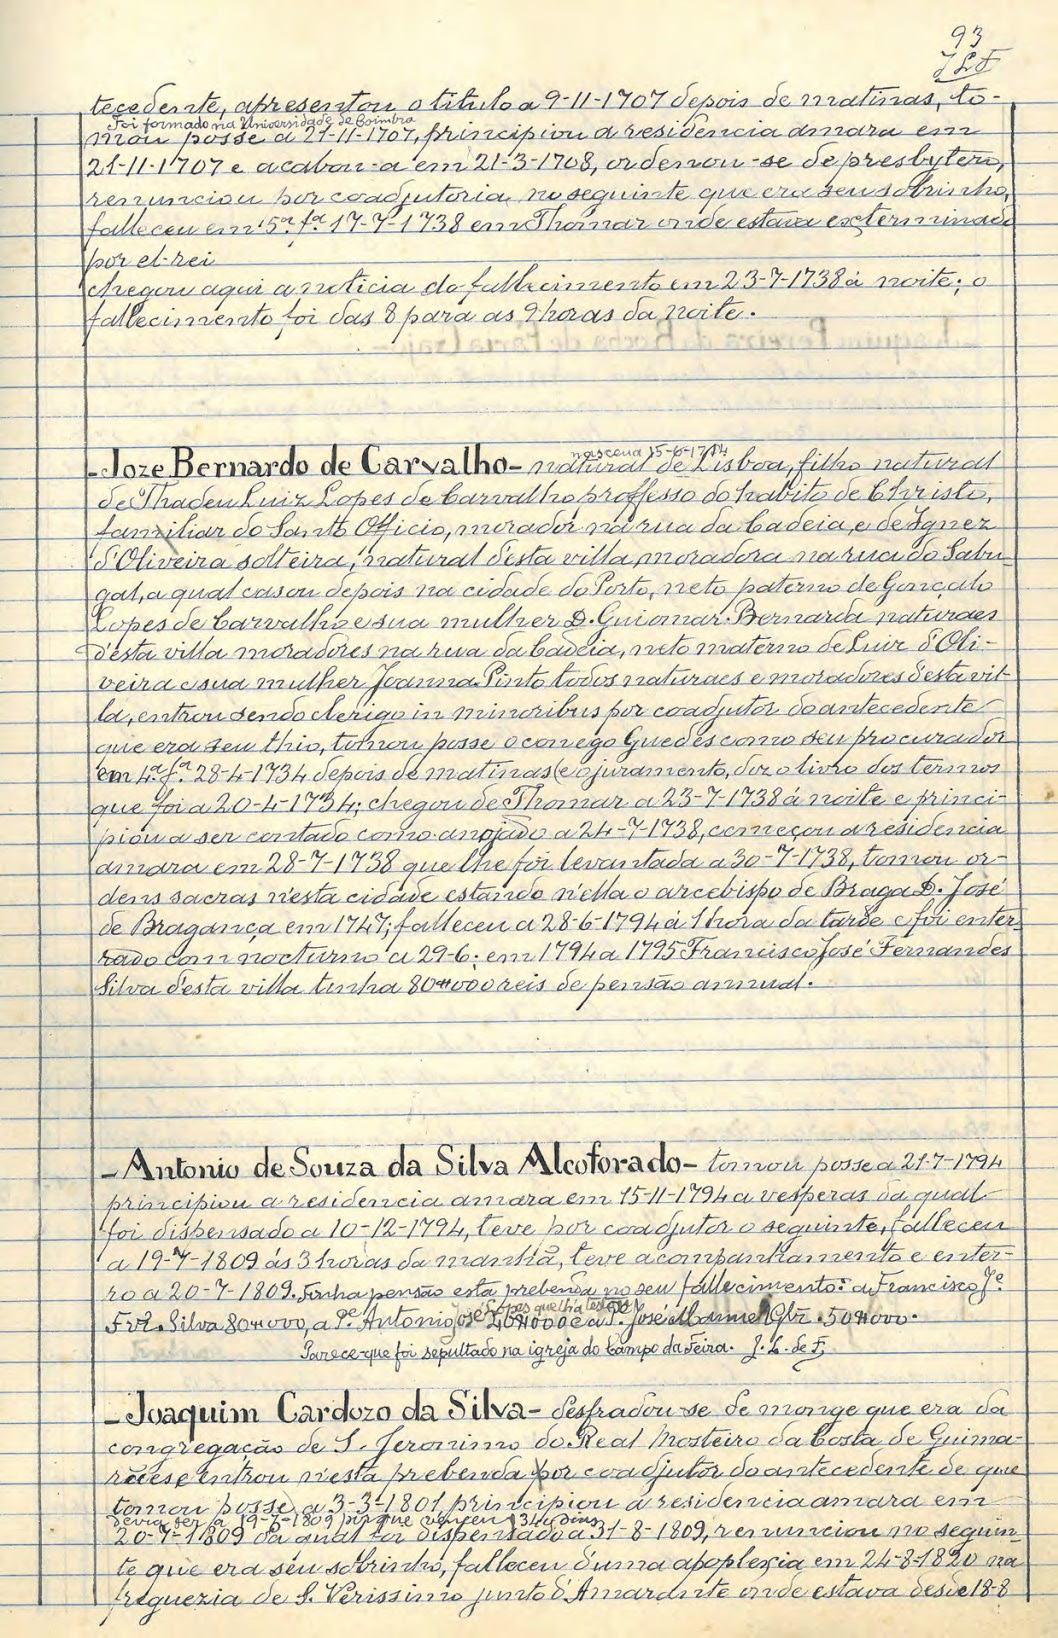 93
J L F
tecedente, apresentou o titulo a 9-11-1707 depois de matinas, to-
Foi formado na Universidade de Coimbra
mou posse a 21-11-1707, principiou a residencia amara em
21-11-1707 e acabou-a em 21-3-1708, ordenou-se de presbytero,
renunciou por coadjutoria no seguinte que era seu sobrinho,
falleceu em 5ª fª 17-7-1738 em Thomar onde estava exterminado
por el-rei
chegou aqui a noticia do fallecimento em 23-7-1738 á noite; o
fallecimento foi das 8 para as 9 horas da noite.
nasceu 15-6-1714
- Joze Bernardo de Carvalho - natural de Lisboa, filho natural
de Thadeu Luiz Lopes de Carvalho, proffesso do habito de Christo,
familiar do Santo Officio, morador na rua da Cadeia, e de Ignez
d'Oliveira solteira, natural d'esta villa, moradora na rua do Sabu-
gal, a qual casou depois na cidade do Porto, neto paterno de Gonçalo
Lopes de Carvalho e sua mulher D. Guiomar Bernarda naturaes
d'esta villa moradores na rua da Cadeia, neto materno de Luiz d'Oli-
veira e sua mulher Joanna Pinto todos naturaes e moradores d'esta vil-
la, entrou sendo clerigo in minoribus por coadjutor do antecedente
que era seu thio, tomou posse o conego Guedes como seu procurador
em 4ª fª 28-4-1734 depois de matinas (e o juramento, diz o livro dos termos
que foi a 20-4-1734; chegou de Thomar a 23-7-1738 á noite e princi-
piou a ser contado como anojado a 24-7-1738, começou a residencia
amara em 28-7-1738 que lhe foi levantada a 30-7-1738, tomou or-
dens sacras n'esta cidade estando n'ella o arcebispo de Braga D. José
de Bragança em 1747; falleceu a 28-6-1794 á 1 hora da tarde e foi enter-
rado com nocturno a 29-6; em 1794 a 1795 Francisco José Fernandes
Silva d'esta villa tinha 80#000 reis de pensão annual.
- Antonio de Souza da Silva Alcoforado - tomou posse a 21-7-1794
principiou a residencia amara em 15-11-1794 a vesperas da qual
foi dispensado a 10-12-1794, teve por coadjutor o seguinte, falleceu
a 19-7-1809 ás 3 horas da manhã, teve acompanhamento e enter-
ro a 20-7-1809. Tinha pensão esta prebenda no seu fallecimento: a Francisco Jé
Frz. Silva 80#000, a Pe Antonio José 40#000 e a P. José Manuel Glz. 50#000.
Parece que foi sepultado na igreja do Campo da Feira. J. L. de F.
- Joaquim Cardozo da Silva - desfradou-se de monge que era da
congregação de S. Jeronimo do Real Mosteiro da Costa de Guima-
rães e entrou n'esta prebenda por coadjutor do antecedente de que
tomou posse a 3-3-1801, principiou a residencia amara em
devia ser a 19-7-1809 porque venceu 134 dias
20-7-1809 da qual foi dispensado a 31-8-1809, renunciou no seguin-
te que era seu sobrinho, falleceu d'uma apoplexia em 24-8-1820 na
freguezia de S. Verissimo junto d'Amarante onde estava desde 18-8